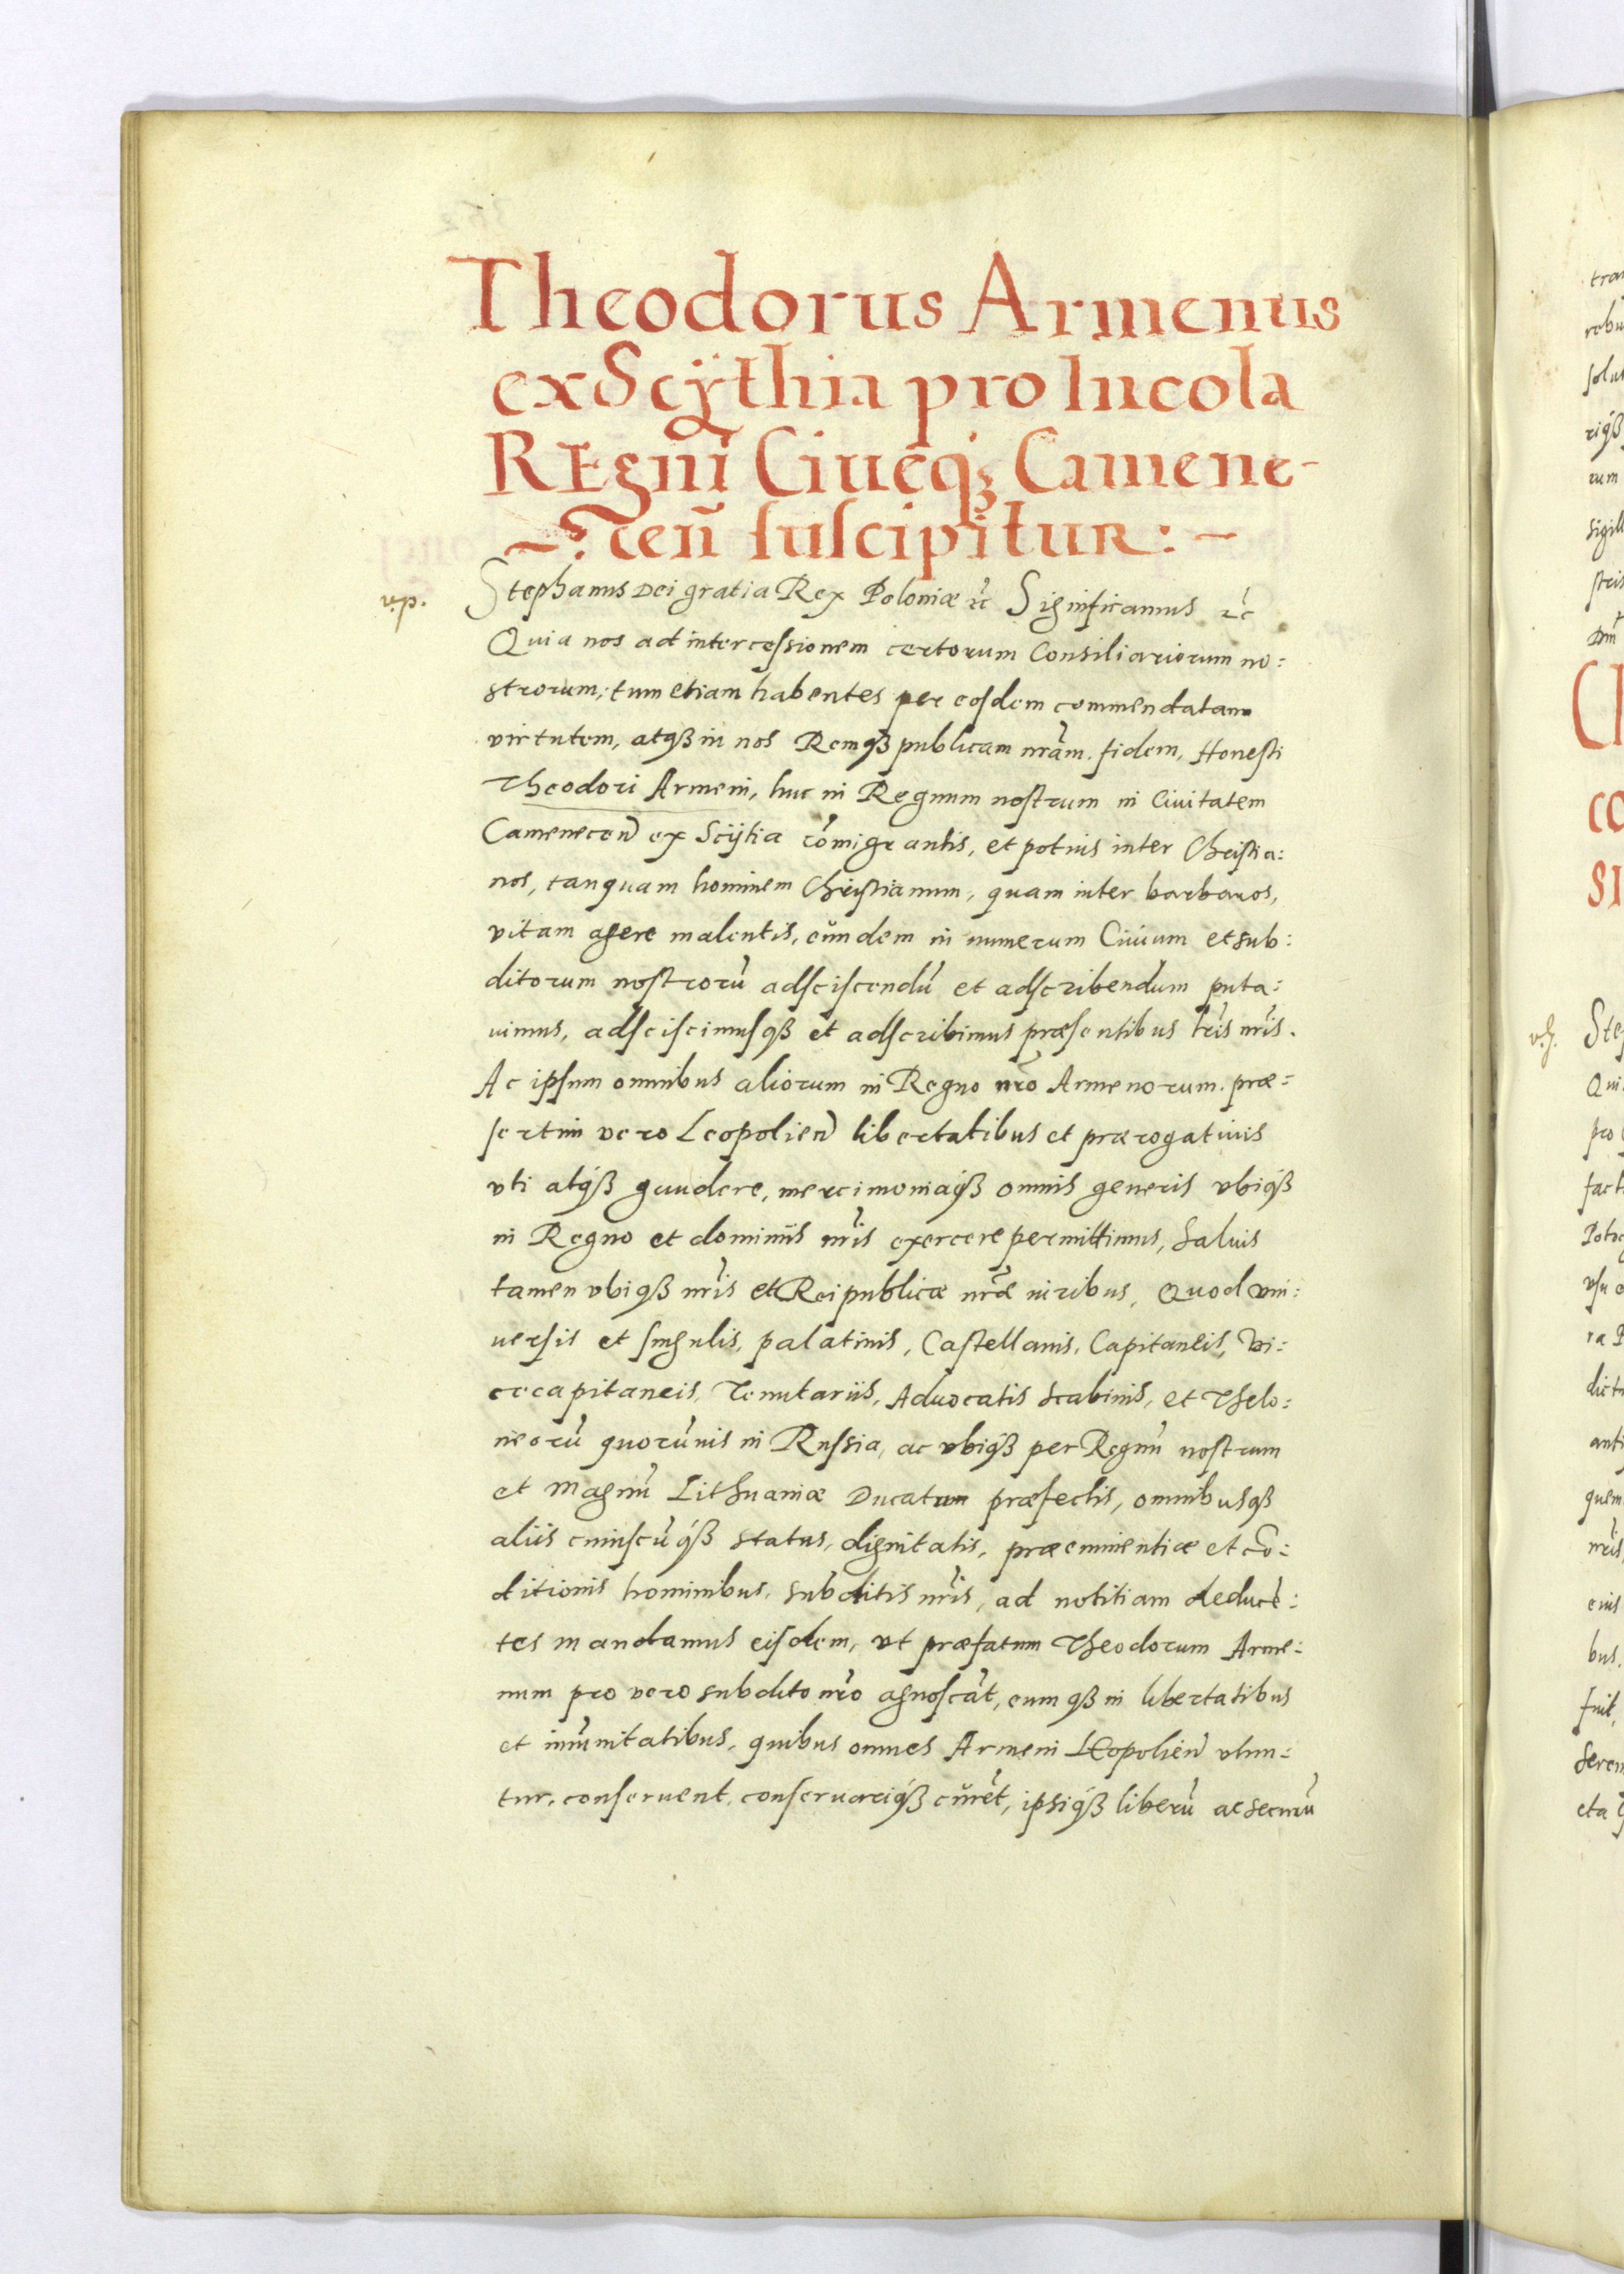 Theodorus Armenus
ex Scÿthia pro Incola
REgni Ciueq₃ Camene-
cen̄ suscipitur: -
v.p.
Stephanus Dei gratia Rex Poloniæ ꝛc̃ Significamus ꝛc̃
Quia nos ad intercessionem certorum Consiliariorum no:
strorum, tum etiam habentes per eosdem commendatam
virtutem, atqß in nos Remqß publicam nr̃am. fidem, Honesti
Theodori Armeni, huc in Regnum nostrum in Ciuitatem
Camenecen̄ ex Scÿtia com̃igrantis, et potius inter Christia:
nos, tanquam hominem Christianum, quam inter barbaros,
vitam agere malentis, eundem in numerum Ciuium et sub:
ditorum nostrorũ adsciscendũ et adscribendum puta:
uimus, adsciscimusqß et adscribimus præsentibus lr̃is nr̃is.
Ac ipsum omnibus aliorum in Regno nr̃o Armenorum. præ=
sertim vero Leopolien̄ libertatibus et prærogatiuis
vti atqß gaudere, mercimoniaqß omnis generis vbiqß
in Regno et dominiis nr̃is exercere permittimus, Saluis
tamen vbiqß nr̃is et Reipublicæ nr̃æ iuribus, Quod vni:
uersis et singulis, palatinis, Castellanis, Capitaneis, Vi:
cecapitaneis, Tenutariis, Aduocatis Scabinis, et Thelo:
neorũ quorũuis in Russia, ac vbiqß per Regnũ nostrum
et Magnũ Lithuaniæ Ducatum præfectis, omnibusqß
aliis cuiuscũqß status, dignitatis, præeminentiæ et cõ:
ditionis hominibus, subditis nr̃is, ad notitiam deducẽ:
tes mandamus eisdem, vt præfatum Theodorum Arme:
num pro vero subdito nr̃o agnoscãt, eumqß in libertatibus
et imũnitatibus, quibus omnes Armeni LEopolien̄ vtun:
tur, conseruent, conseruariqß curẽt, ipsiqß liberũ ac securũ